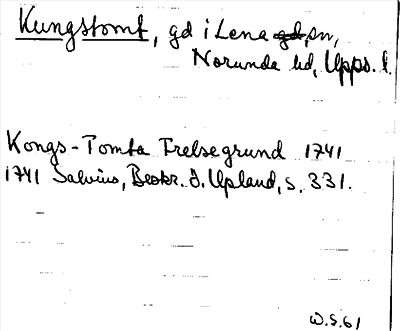 Kungstomt, gd i Lena gd, sn,
Norunda hd, Upps. l.
Kongs-Tomta Frelsegrund 1741
1741 Salvius, Beskr. ö. Upland, s. 331.
W.S. 61